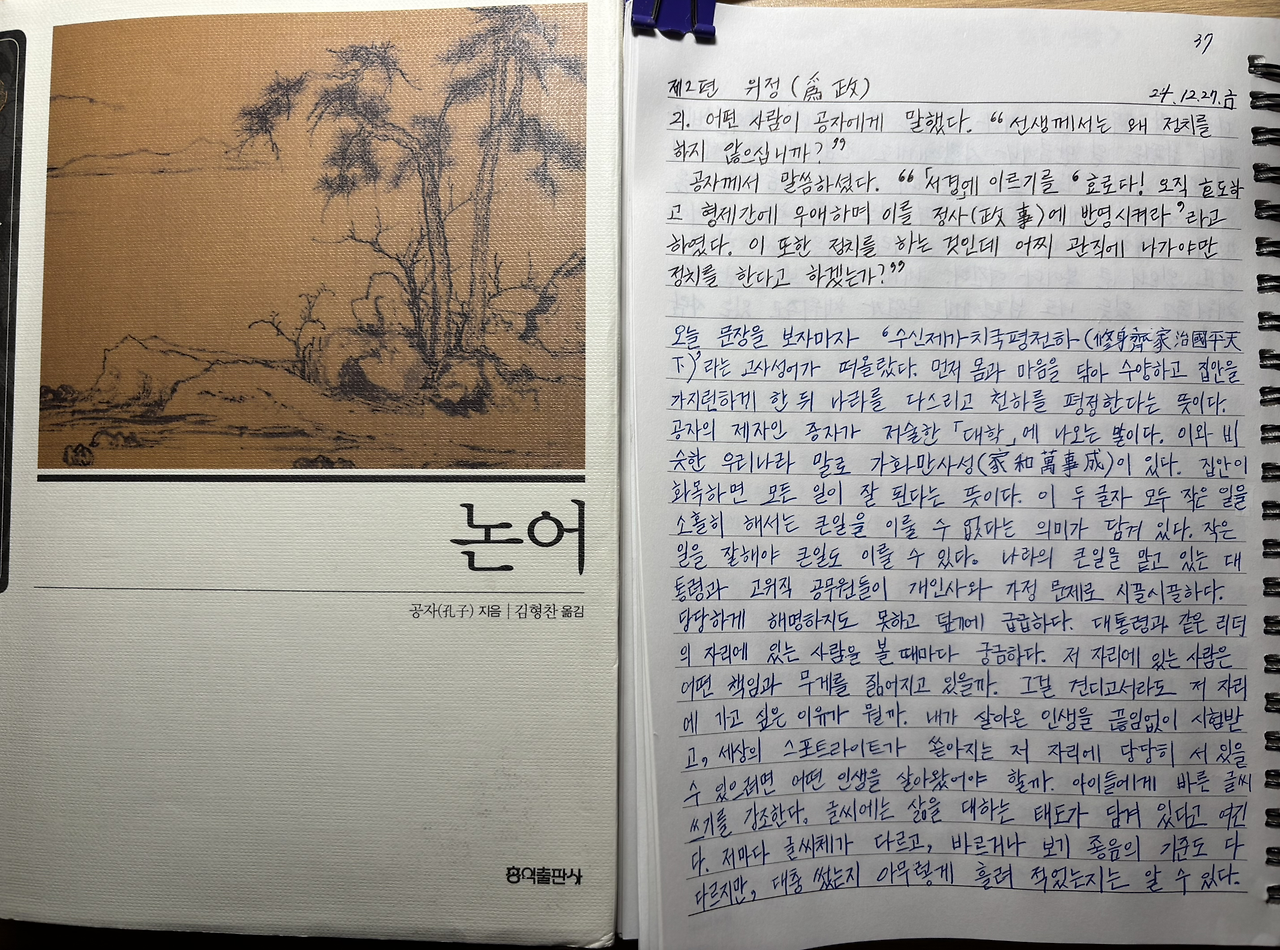 논어
공자(孔子) 지음 | 김형찬 옮김
홍익출판사
37
제2편 위정(爲政)
24.12.27.금
21. 어떤 사람이 공자에게 말했다. “선생께서는 왜 정치를
하지 않으십니까?”
공자께서 말씀하셨다. “「서경」에 이르기를 ‘효로다! 오직 효도하
고 형제간에 우애하며 이를 정사(政事)에 반영시켜라’라고
하였다. 이 또한 정치를 하는 것인데 어찌 관직에 나가야만
정치를 한다고 하겠는가?”
오늘 문장을 보자마자 ‘수신제가치국평천하(修身齊家治國平天
下)’라는 고사성어가 떠올랐다. 먼저 몸과 마음을 닦아 수양하고 집안을
가지런하게 한 뒤 나라를 다스리고 천하를 평정한다는 뜻이다.
공자의 제자인 증자가 저술한 「대학」에 나오는 말이다. 이와 비
슷한 우리나라 말로 가화만사성(家和萬事成)이 있다. 집안이
화목하면 모든 일이 잘 된다는 뜻이다. 이 두 글자 모두 작은 일을
소홀히 해서는 큰일을 이룰 수 없다는 의미가 담겨 있다. 작은
일을 잘해야 큰일도 이룰 수 있다. 나라의 큰일을 맡고 있는 대
통령과 고위직 공무원들이 개인사와 가정 문제로 시끌시끌하다.
당당하게 해명하지도 못하고 덮기에 급급하다. 대통령과 같은 리더
의 자리에 있는 사람을 볼 때마다 궁금하다. 저 자리에 있는 사람은
어떤 책임과 무게를 짊어지고 있을까. 그걸 견디고서라도 저 자리
에 가고 싶은 이유가 뭘까. 내가 살아온 인생을 끊임없이 시험받
고, 세상의 스포트라이트가 쏟아지는 저 자리에 당당히 서 있을
수 있으려면 어떤 인생을 살아왔어야 할까. 아이들에게 바른 글씨
쓰기를 강조한다. 글씨에는 삶을 대하는 태도가 담겨 있다고 여긴
다. 저마다 글씨체가 다르고, 바르거나 보기 좋음의 기준도 다
다르지만, 대충 썼는지 아무렇게 흘려 적었는지는 알 수 있다.